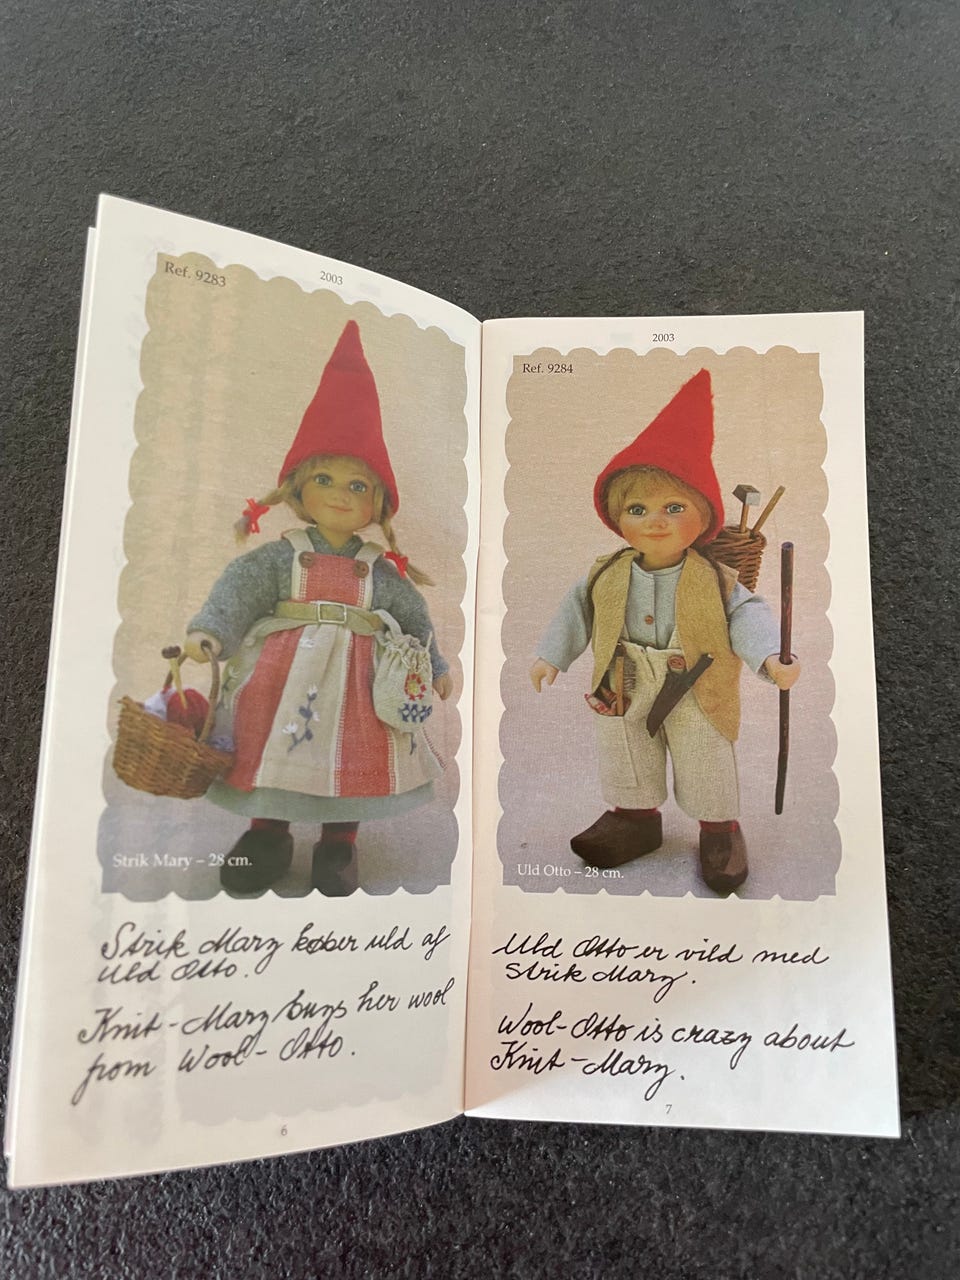 Ref. 9283
2003
Strik Mary – 28 cm.
Strik Mary køber uld af
Uld Otto.
Knit-Mary buys her wool
from Wool-Otto.
6
2003
Ref. 9284
Uld Otto – 28 cm.
Uld Otto er vild med
Strik Mary.
Wool-Otto is crazy about
Knit-Mary.
7